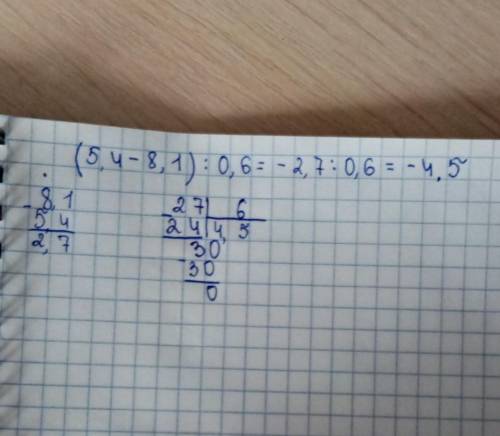 (5,4-8,1):0,6=-2,7:0,6=-4,5
-8,1
5 4
2,7
-27 6
24 4,5
-30
30
0